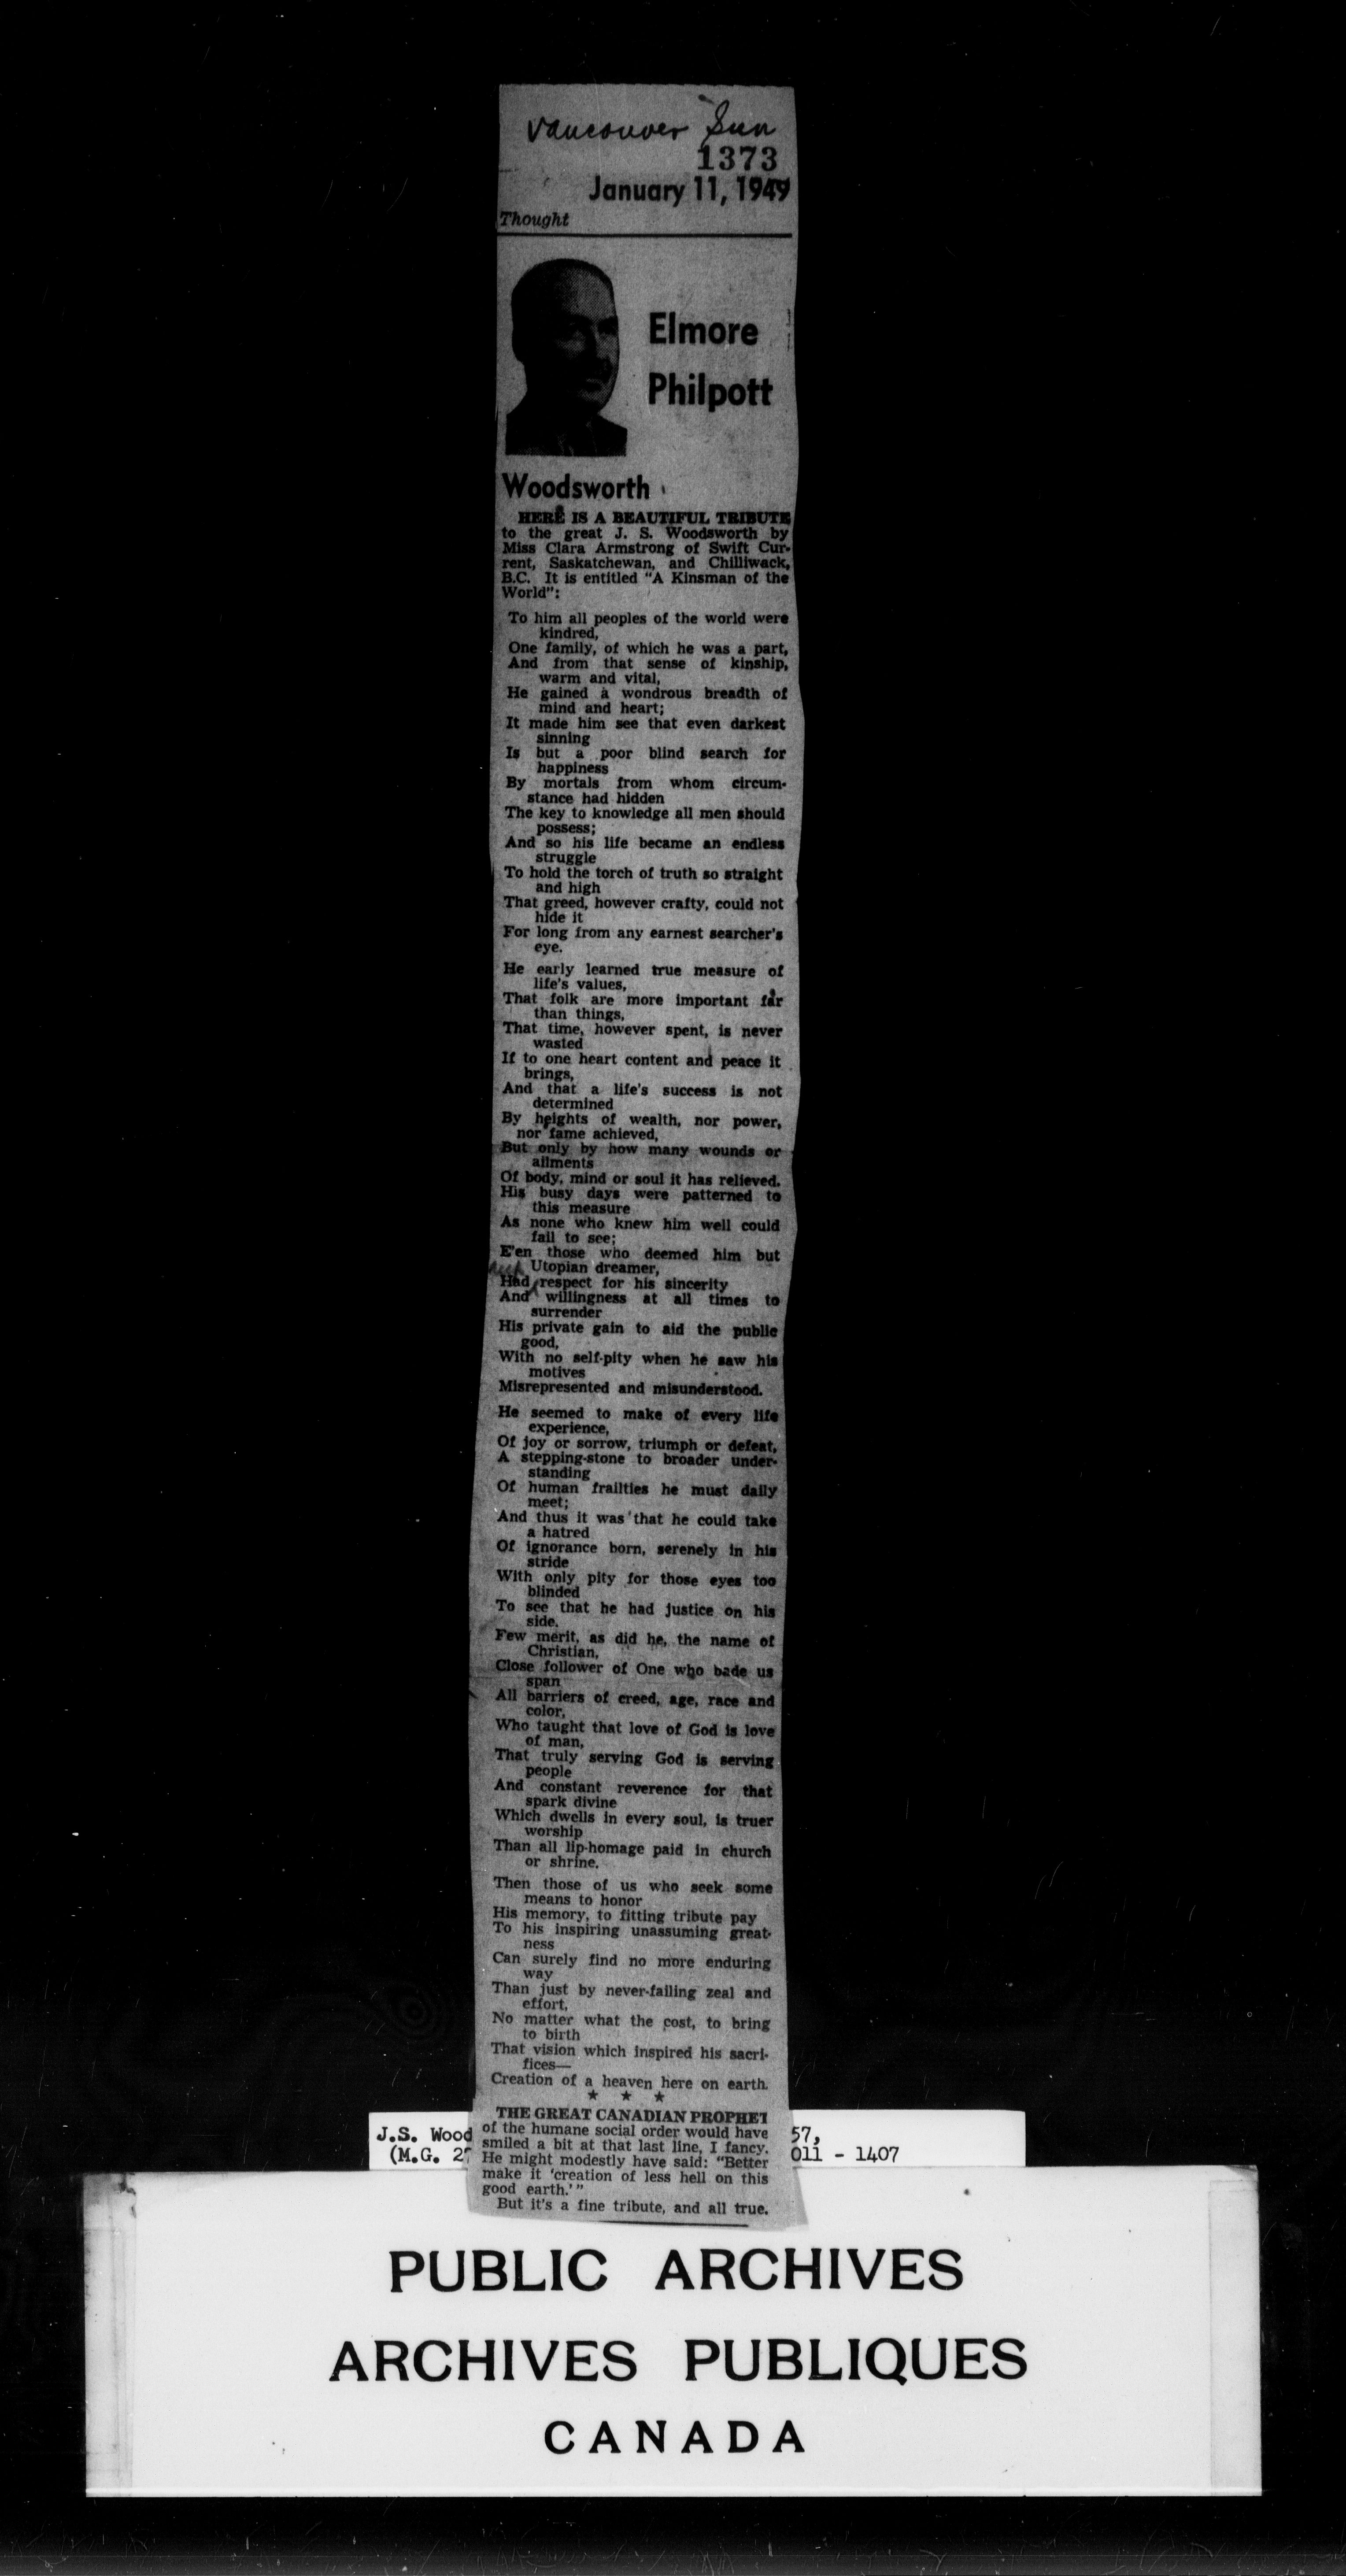 Vancouver Sun
1373
January 11, 1949
Thought
Elmore
Philpott
Woodsworth
HERE IS A BEAUTIFUL TRIBUTE
to the great J. S. Woodsworth by
Miss Clara Armstrong of Swift Cur-
rent, Saskatchewan, and Chilliwack,
B.C. It is entitled "A Kinsman of the
World":
To him all peoples of the world were
kindred,
One family, of which he was a part,
And from that sense of kinship,
warm and vital,
He gained a wondrous breadth of
mind and heart;
It made him see that even darkest
sinning
Is but a poor blind search for
happiness
By mortals from whom circum-
stance had hidden
The key to knowledge all men should
possess;
And so his life became an endless
struggle
To hold the torch of truth so straight
and high
That greed, however crafty, could not
hide it
For long from any earnest searcher's
eye.
He early learned true measure of
life's values,
That folk are more important far
than things,
That time, however spent, is never
wasted
If to one heart content and peace it
brings,
And that a life's success is not
determined
By heights of wealth, nor power,
nor fame achieved,
But only by how many wounds or
ailments
Of body, mind or soul it has relieved.
His busy days were patterned to
this measure
As none who knew him well could
fail to see;
E'en those who deemed him but
Utopian dreamer,
Had respect for his sincerity
And willingness at all times to
surrender
His private gain to aid the public
good,
With no self-pity when he saw his
motives
Misrepresented and misunderstood.
He seemed to make of every life
experience,
Of joy or sorrow, triumph or defeat,
A stepping-stone to broader under-
standing
Of human frailties he must daily
meet;
And thus it was that he could take
a hatred
Of ignorance born, serenely in his
stride
With only pity for those eyes too
blinded
To see that he had justice on his
side.
Few merit, as did he, the name of
Christian,
Close follower of One who bade us
span
All barriers of creed, age, race and
color,
Who taught that love of God is love
of man,
That truly serving God is serving
people
And constant reverence for that
spark divine
Which dwells in every soul, is truer
worship
Than all lip-homage paid in church
or shrine.
Then those of us who seek some
means to honor
His memory, to fitting tribute pay
To his inspiring unassuming great-
ness
Can surely find no more enduring
way
Than just by never-failing zeal and
effort,
No matter what the cost, to bring
to birth
That vision which inspired his sacri-
fices—
Creation of a heaven here on earth.
★ ★ ★
THE GREAT CANADIAN PROPHET
of the humane social order would have
smiled a bit at that last line, I fancy.
He might modestly have said: "Better
make it 'creation of less hell on this
good earth.'"
But it's a fine tribute, and all true.
J.S. Wood 57,
(M.G. 27 011 - 1407
PUBLIC ARCHIVES
ARCHIVES PUBLIQUES
CANADA